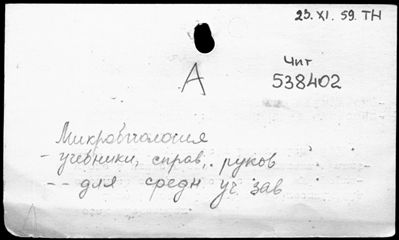 23. XI. 59. ТН
А
Чит
538402
Микробиология
- учебники, справ., руков
-- для средн уч зав